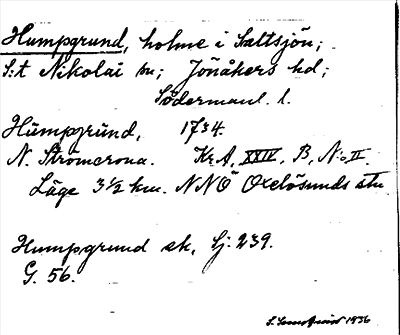 Humpgrund, holme i Saltsjön;
S:t Nikolai sn; Jönåkers hd;
Södermanl. l.
Humpgrund, 1734.
N. Strömcrona. Kr.A, XXIV, B, N:o II.
Läge 3½ km. NNÖ Oxelösunds stn
Humpgrund sk, Sj. 239.
G. 56.
1936